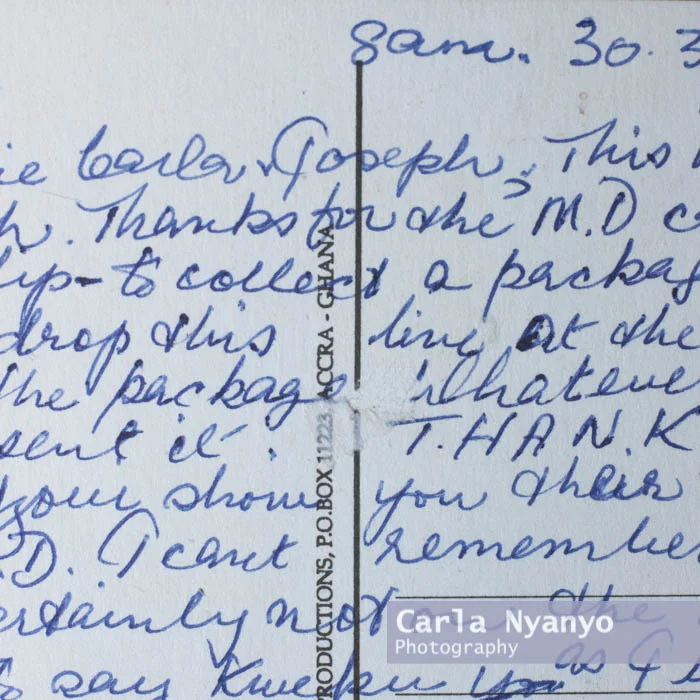 8am. 30.3
ie Carla & Joseph, This
h. Thanks for the M.D c
lip - to collect a packag
drop this line at the
the package whateve
sent it. T.HAN.K
your show you their
P.D. I cant remember
ertainly not the
to say Kweku as I
PRODUCTIONS, P.O.BOX 11223, ACCRA - GHANA
Carla Nyanyo
Photography